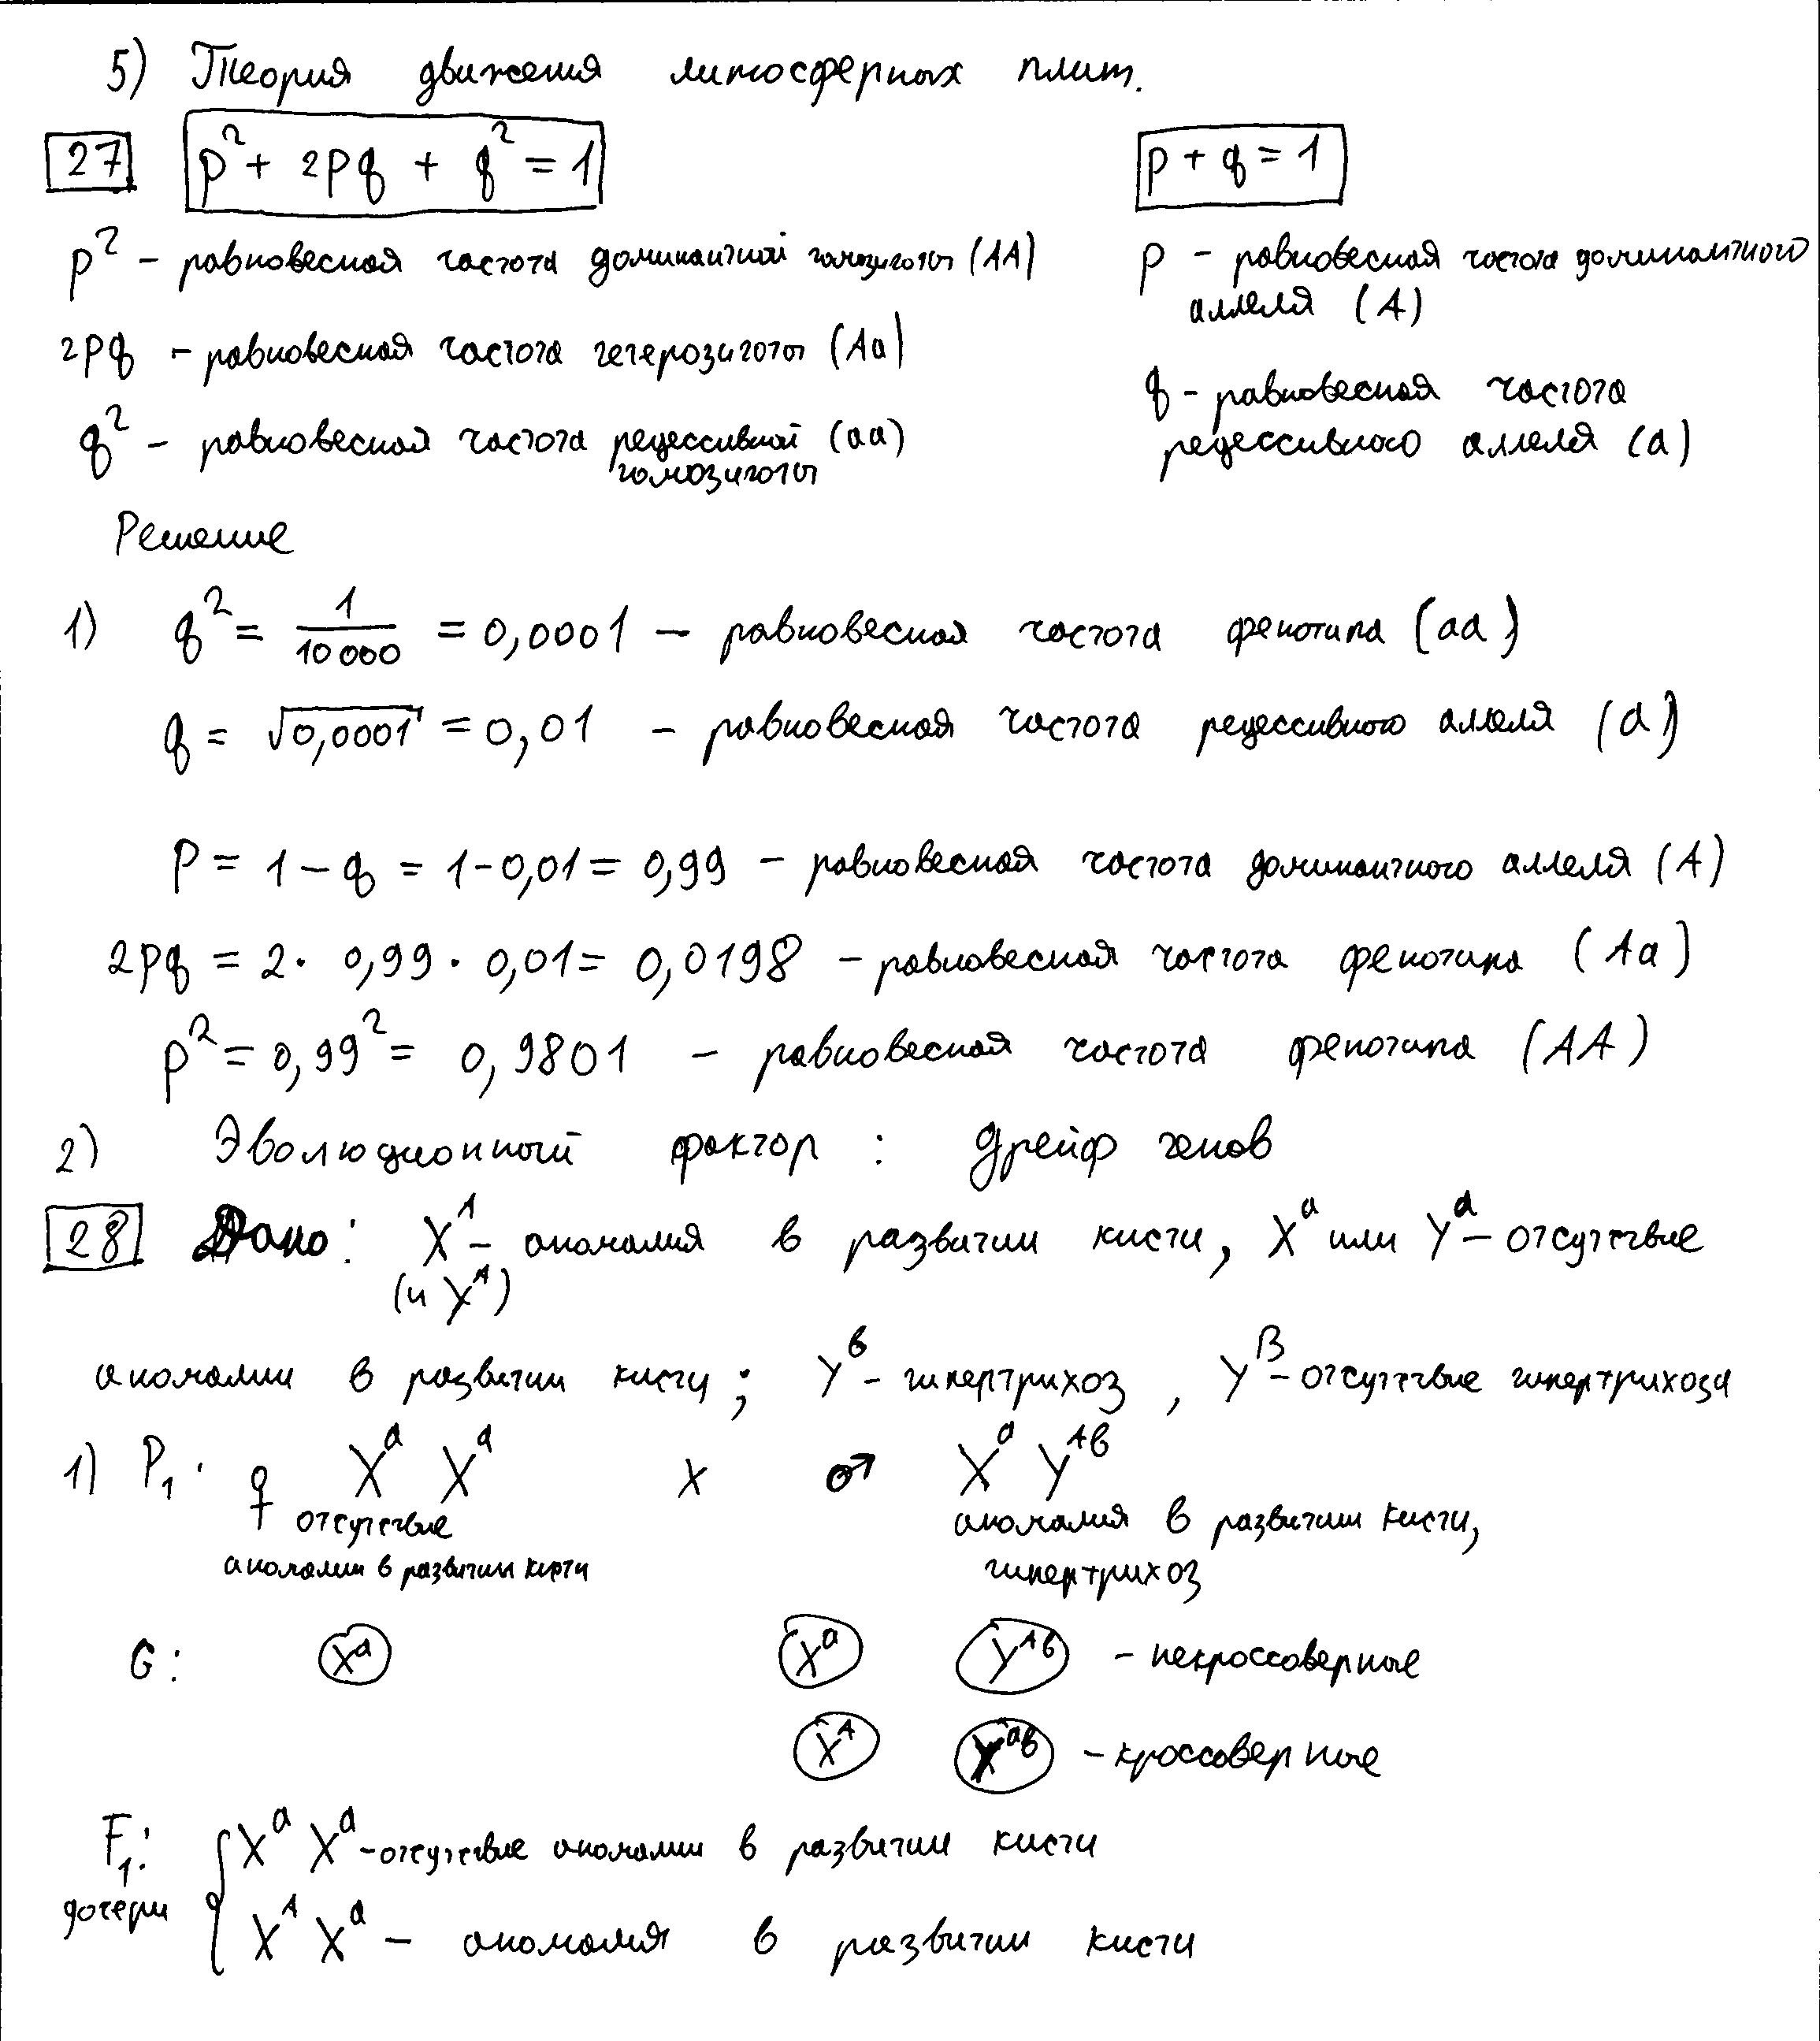 5) Теория движения литосферных плит.
27 p² + 2pq + q² = 1 p + q = 1
p² – равновесная частота доминантной гомозиготы (AA) p – равновесная частота доминантного
аллеля (A)
2pq – равновесная частота гетерозиготы (Aa)
q – равновесная частота
q² – равновесная частота рецессивной (aa) рецессивного аллеля (a)
гомозиготы
Решение
1) q² = 1/10000 = 0,0001 – равновесная частота фенотипа (aa)
q = √0,0001 = 0,01 – равновесная частота рецессивного аллеля (a)
p = 1 – q = 1 - 0,01 = 0,99 – равновесная частота доминантного аллеля (A)
2pq = 2 · 0,99 · 0,01 = 0,0198 – равновесная частота фенотипа (Aa)
p² = 0,99² = 0,9801 – равновесная частота фенотипа (AA)
2) Эволюционный фактор : дрейф генов
28 Дано: X^A – аномалия в развитии кисти, X^a или Y^a – отсутствие
(и Y^A)
аномалии в развитии кисти; Y^b – гипертрихоз, Y^B – отсутствие гипертрихоза
1) P₁: ♀ X^a X^a x ♂ X^a Y^Ab
отсутствие аномалия в развитии кисти,
аномалии в развитии кисти гипертрихоз
G: X^a X^a Y^Ab – некроссоверные
X^A Y^ab – кроссоверные
F₁: X^a X^a – отсутствие аномалии в развитии кисти
дочери X^A X^a – аномалия в развитии кисти